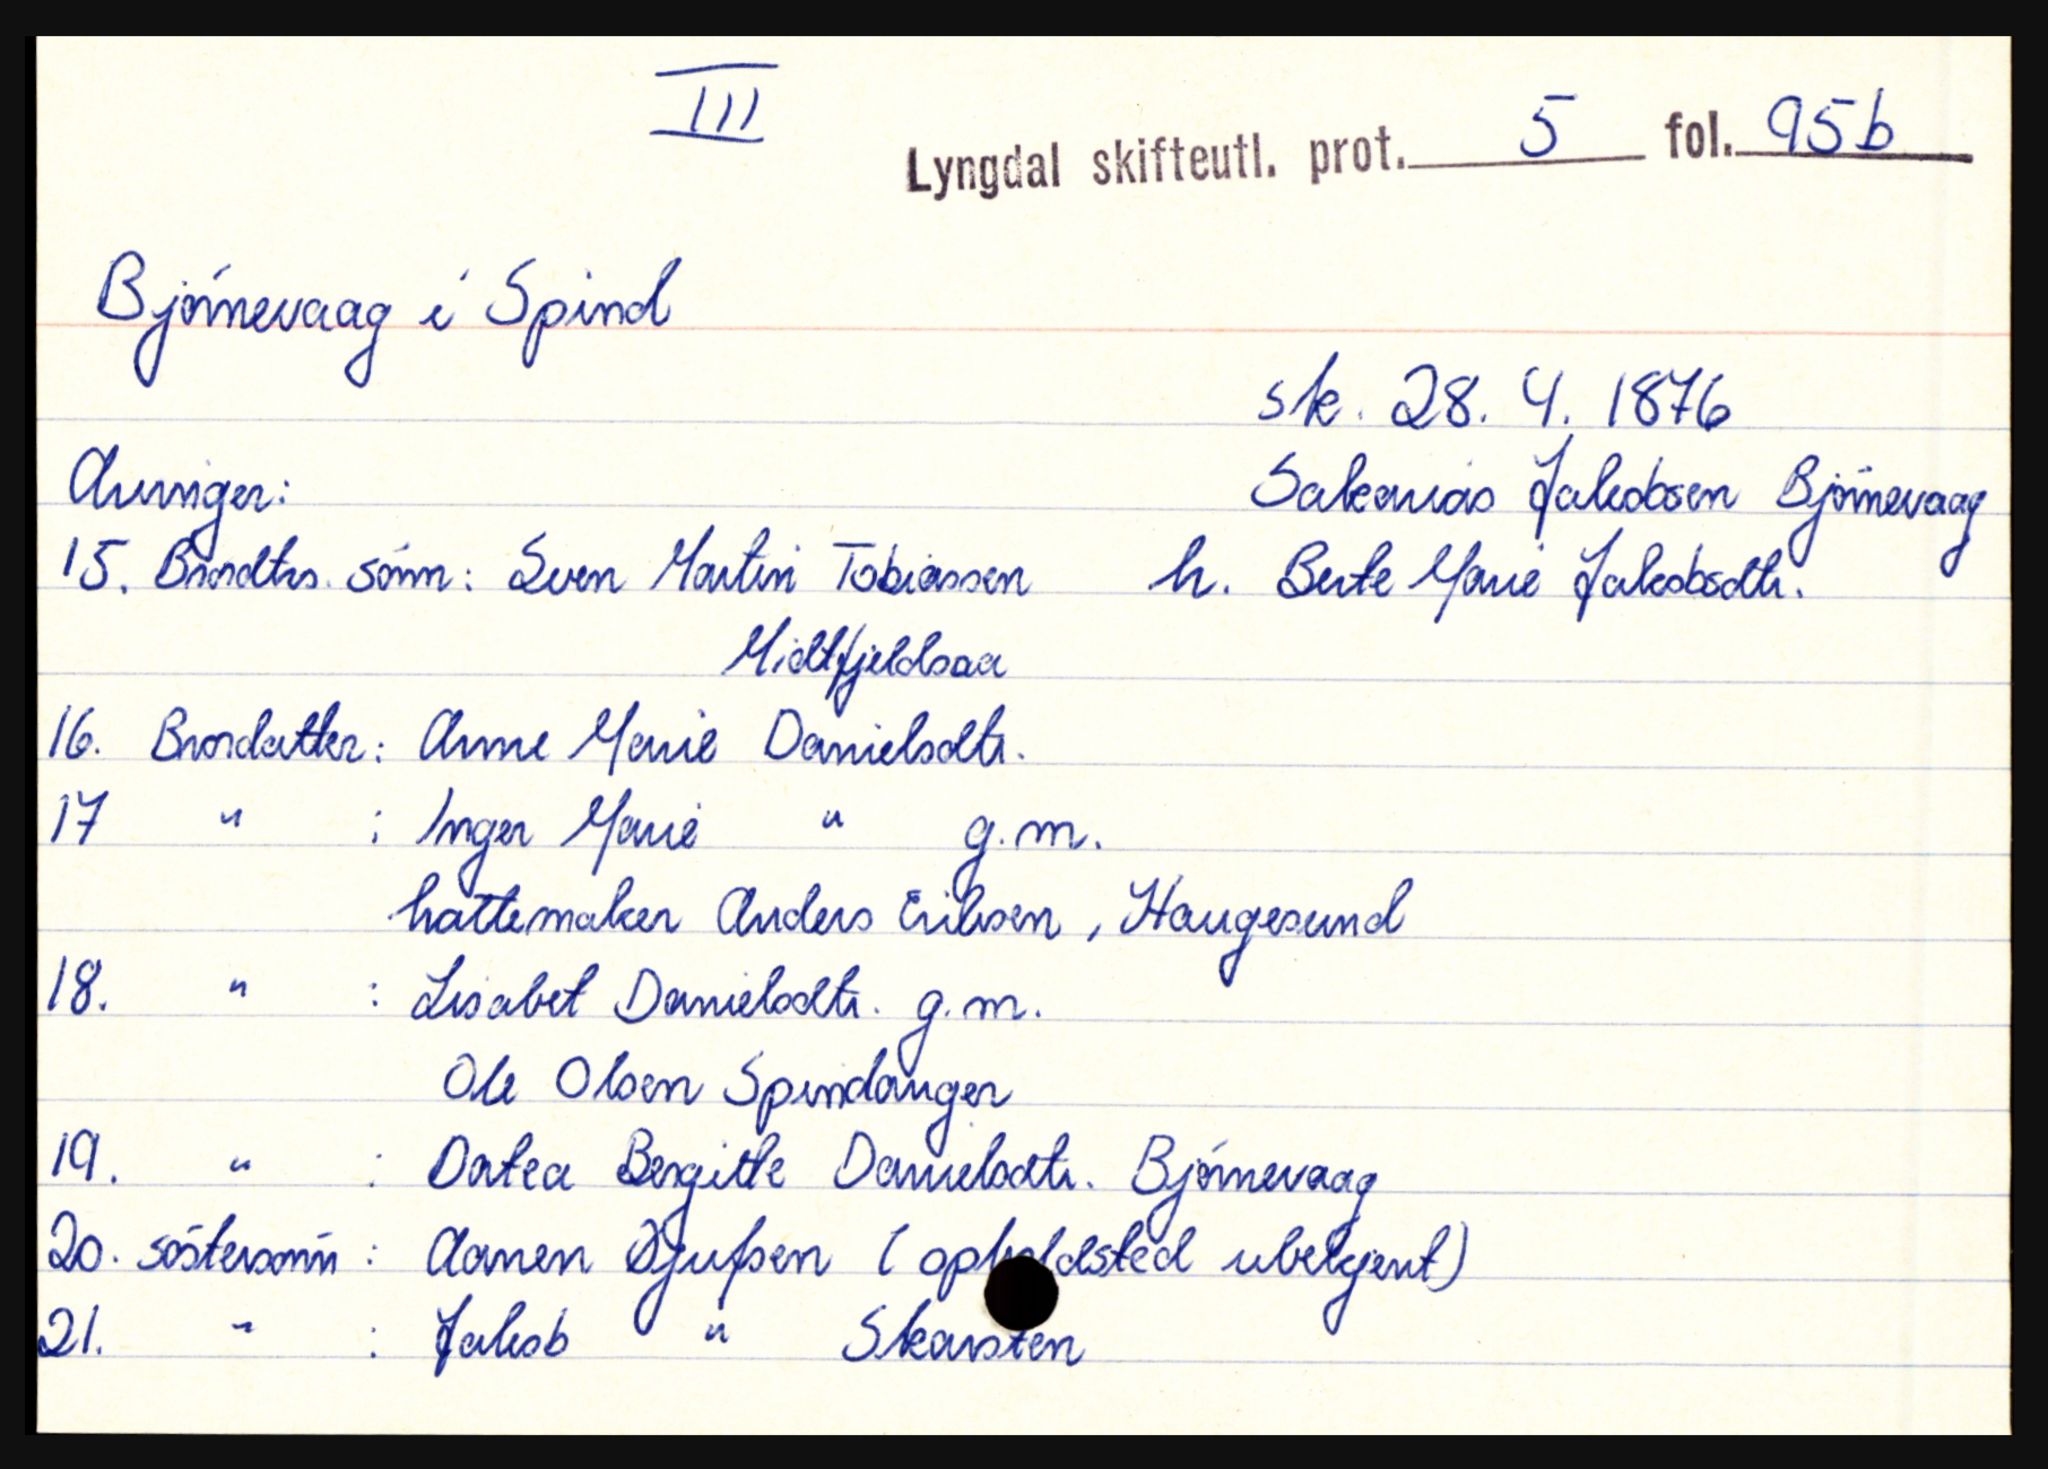 III
Lyngdal skifteutl. prot. 5 fol. 95b
Bjórnevaag i Spind
sk. 28. 4. 1876
Arvinger:
Sakarias Jakobsen Bjórnevaag
15. Brordtrs. sónn: Sven Martin Tobiassen
h. Berte Marie Jakobsdtr.
Midtfjeldsaa
16. Brordatter: Anne Marie Danielsdtr.
17 " : Inger Marie " g.m.
hattemaker Anders Eriksen, Haugesund
18. " : Lisabet Danielsdtr. g.m.
Ole Olsen Spindanger
19. " : Datea Bergitte Danielsdtr. Bjórnevaag
20. sóstersónn : Aanen (opholdsted ubekjent)
21. " : Jakob " Skarsten